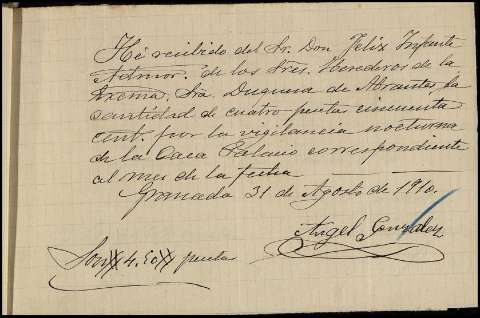 He recibido del Sr. Don Felix Infante
Admor. de los Sres. Herederos de la
Exema. Sra. Duquesa de Abrantes la
cantidad de cuatro pestas cincuenta
cent. por la vigilancia nocturna
de la Casa Palacio correspondiente
al mes de la fecha
Granada 31 de Agosto de 1910.
Angel Gonzalez
Son 4.50 pesetas